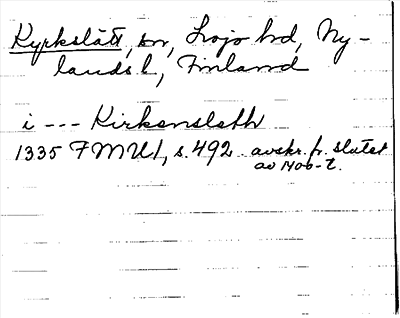 Kyrkslätt, sn, Lojo hd, Ny-
lands l, Finland
i --- Kirkensleth
1335 FMU 1, s. 492 avskr. fr. slutet
av 1400-t.